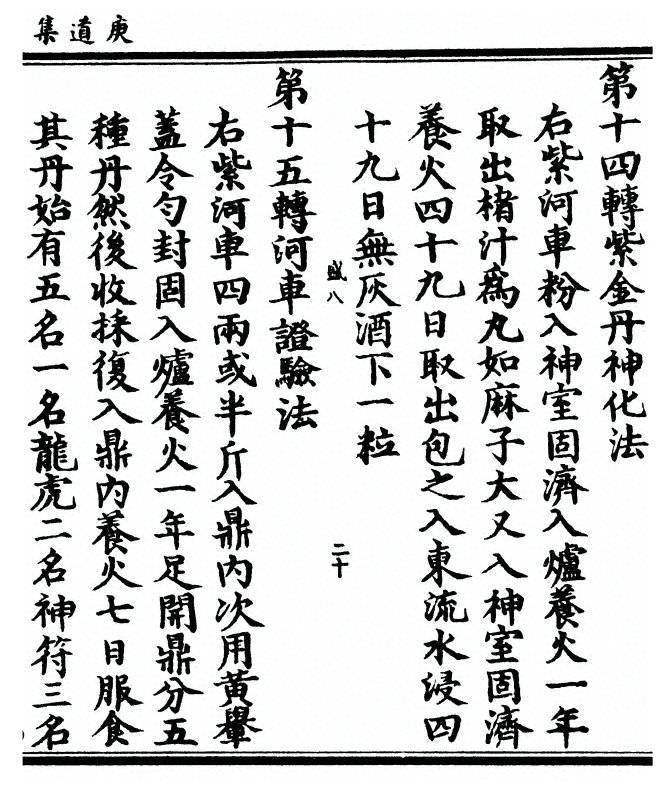 庚道集
第十四轉紫金丹神化法
右紫河車粉入神室固濟入爐養火一年
取出楮汁爲丸如麻子大又入神室固濟
養火四十九日取出包之入東流水浸四
十九日無灰酒下一粒
盛八
二十
第十五轉河車證驗法
右紫河車四兩或半斤入鼎內次用黃轝
蓋令勻封固入爐養火一年足開鼎分五
種丹然後收採復入鼎內養火七日服食
其丹始有五名一名龍虎二名神符三名